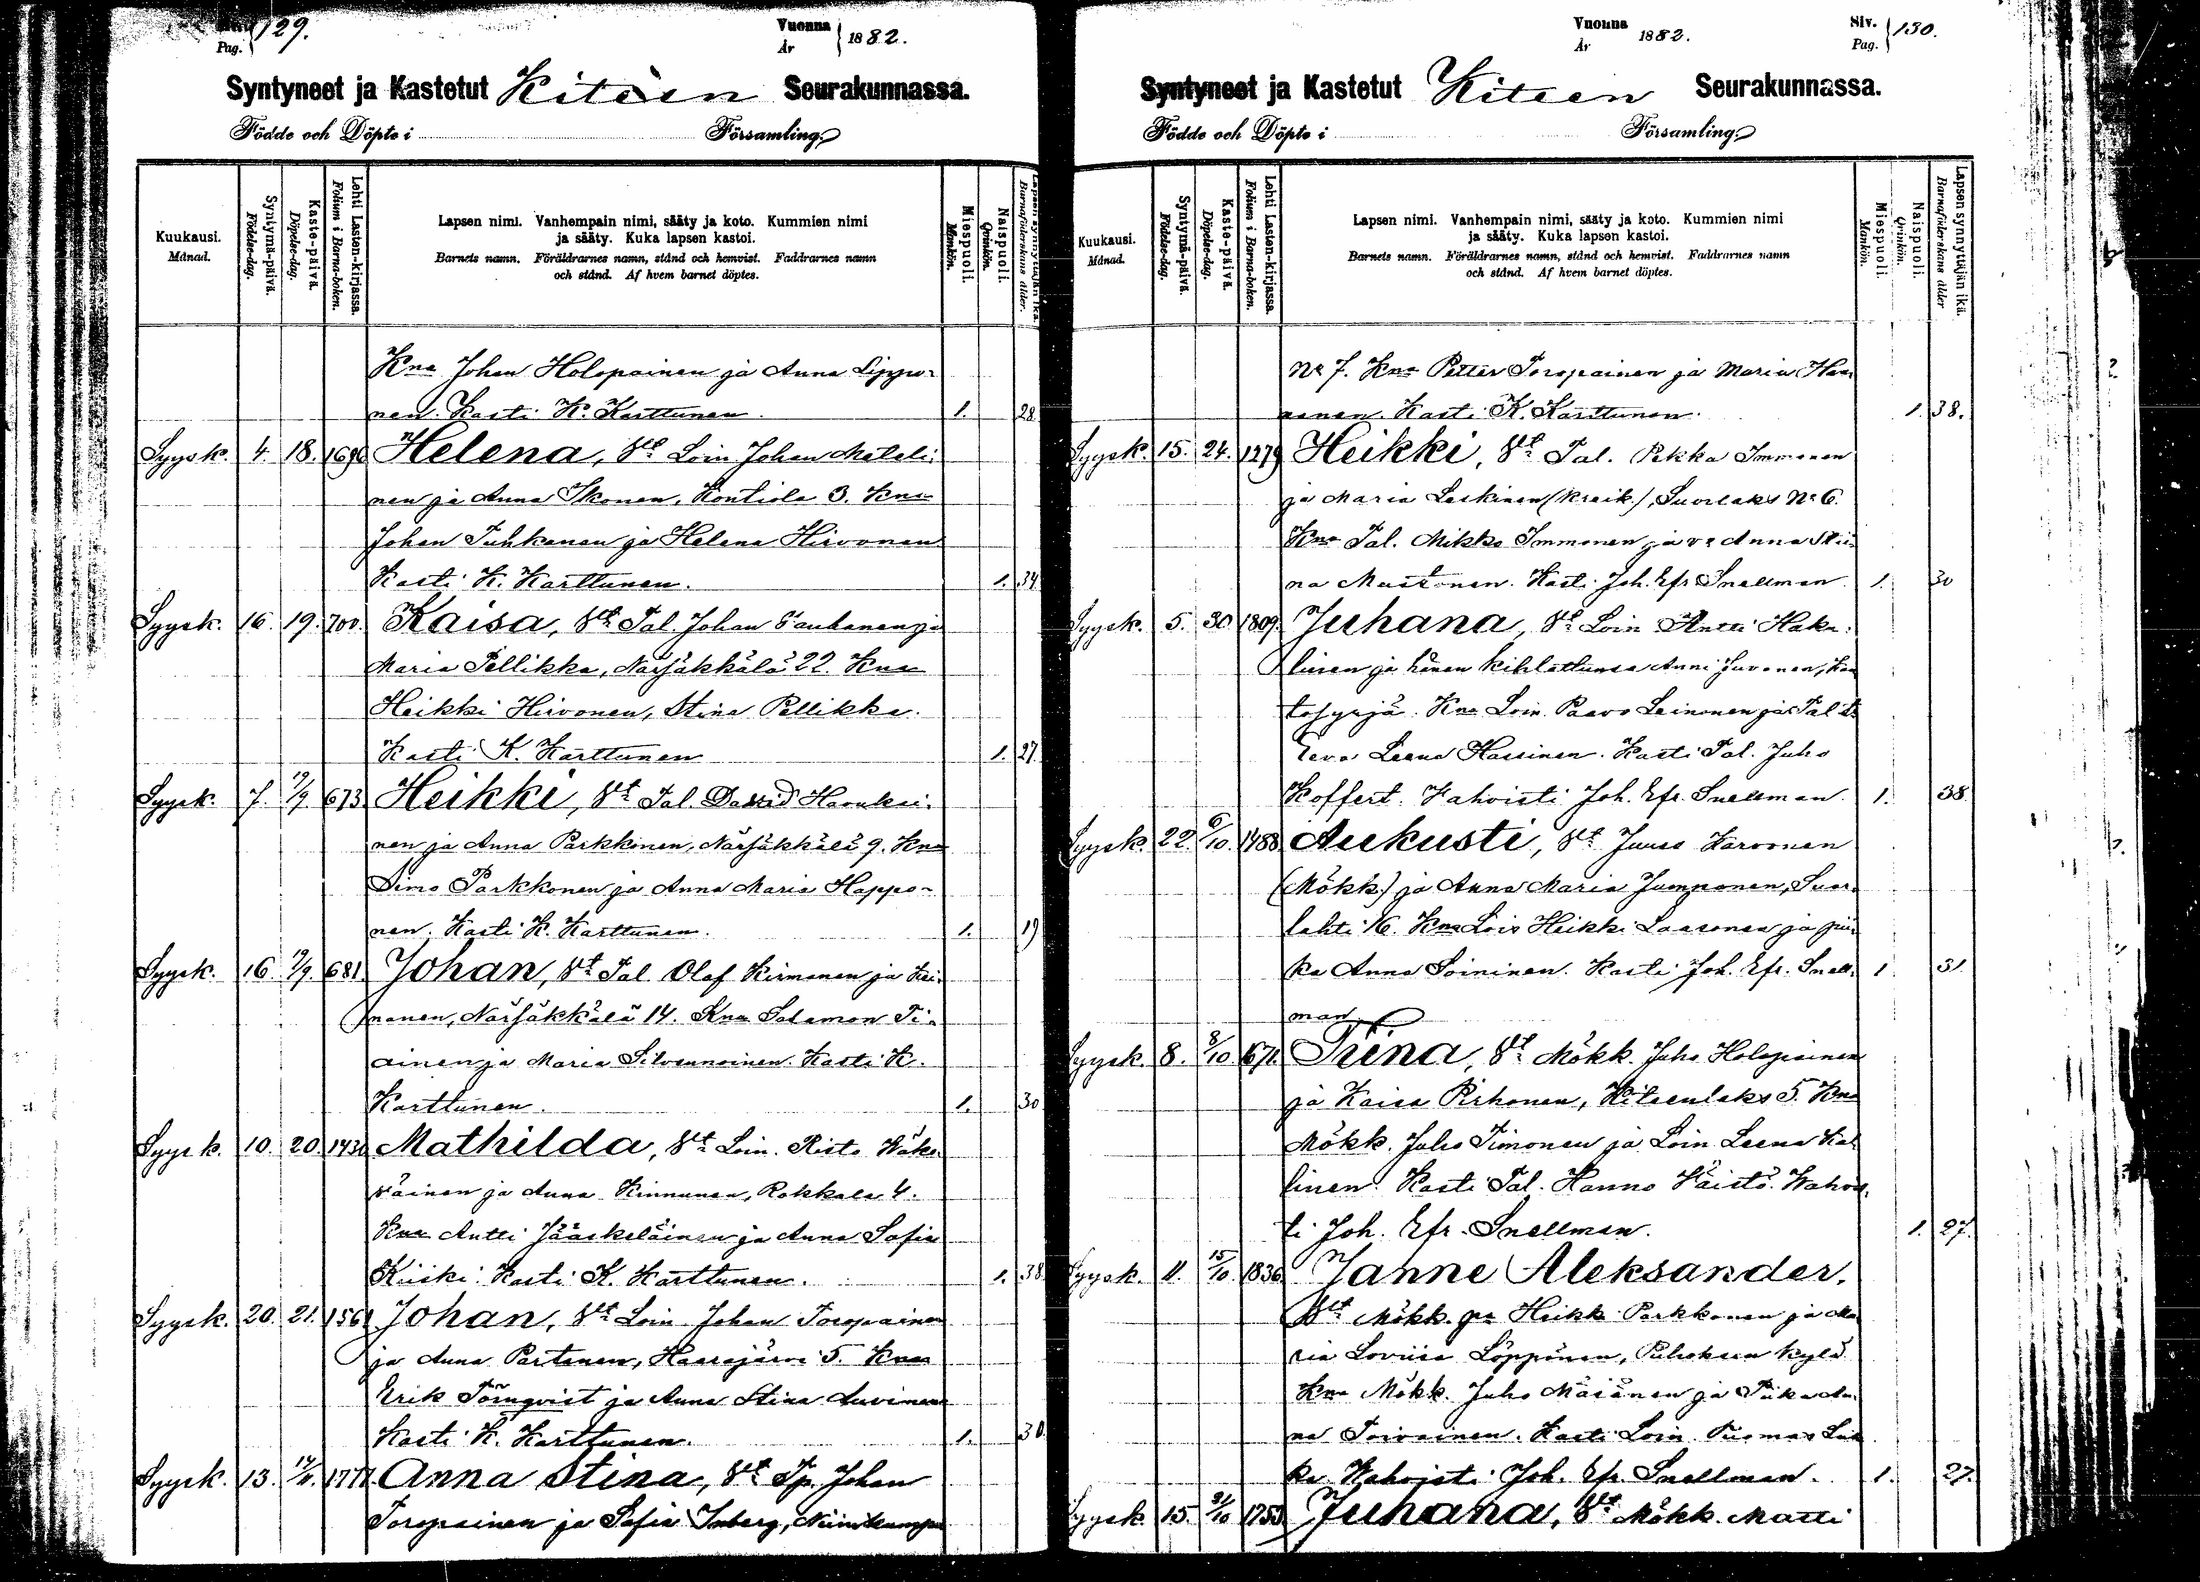 Pag. 129.
Vuonna
År 1882.
Syntyneet ja Kastetut Kiteen Seurakunnassa.
Födde och Döpte i Församling.
Kuukausi.
Månad.
Syntymä-päivä.
Födelse-dag.
Kaste-päivä.
Döpelse-dag.
Lehti Lasten-kirjassa.
Folium i Barna-boken.
Lapsen nimi. Vanhempain nimi, sääty ja koto. Kummien nimi
ja sääty. Kuka lapsen kastoi.
Barnets namn. Föräldrarnes namn, stånd och hemvist. Faddrarnes namn
och stånd. Af hvem barnet döptes.
Miespuoli.
Mankön.
Naispuoli.
Qvinkön.
Lapsen synnyttäjän ikä.
Barnaföderskans ålder.
Kna Johan Holopainen ja Anna Lippo-
nen. Kasti K. Karttunen. 1. 28
Syysk. 4. 18. 1696 Helena, Vt Loin Johan Matali-
nen ja Anna Ikonen, Kontiola 3. Kna
Johan Tuhkanen ja Helena Hirvonen
Kasti K. Karttunen. 1. 34
Syysk. 16. 19. 700. Kaisa, Vt Tal. Johan Paukanen ja
Maria Pellikka, Närsäkkälä 22. Kna
Heikki Hirvonen, Stina Pellikka.
Kasti K. Karttunen 1. 27.
Syysk. 7. 19/9 673 Heikki, Vt Tal. David Haruksi-
nen ja Anna Parkkinen, Närsäkkälä 9. Kna
Simo Parkkonen ja Anna Maria Happo-
nen. Kasti K. Karttunen. 1. 19
Syysk. 16 681. Johan, Vt Tal Olaf Kirmanen ja
nonen, Närsäkkälä 14. Kna Salamon Ti-
ainen ja Maria Silvennoinen. Kasti K.
Karttunen. 1. 30
Syysk. 10. 20. 1430 Mathilda, Vt Loin. Risto Wäke-
väinen ja Anna Kinnunen, Rokkala 4.
Kna Antti Jääskeläinen ja Anna Sofia
Kiiski. Kasti K. Karttunen. 1. 38
Syysk. 20. 21. 1561 Johan, Vt Loin Johan Toropainen
ja Anna Partanen, Haarajärvi 5. Kna
Erik Törnqvist ja Anna Stina Auvinen
Kasti K. Karttunen. 1. 30.
Syysk. 13. 1777. Anna Stina, Vt Tp. Johan
Toropainen ja Sofia Inberg, Niinikumpu
Vuonna
År 1882.
Siv.
Pag. 130.
Syntyneet ja Kastetut Kiteen Seurakunnassa.
Födde och Döpte i Församling.
Kuukausi.
Månad.
Syntymä-päivä.
Födelse-dag.
Kaste-päivä.
Döpelse-dag.
Lehti Lasten-kirjassa.
Folium i Barna-boken.
Lapsen nimi. Vanhempain nimi, sääty ja koto. Kummien nimi
ja sääty. Kuka lapsen kastoi.
Barnets namn. Föräldrarnes namn, stånd och hemvist. Faddrarnes namn
och stånd. Af hvem barnet döptes.
Miespuoli.
Mankön.
Naispuoli.
Qvinkön.
Lapsen synnyttäjän ikä.
Barnaföderskans ålder
No 7. Kna Petter Toropainen ja Maria
Kasti K. Karttunen. 1. 38.
Syysk. 15. 24. 1279 Heikki, Vt Tal. Pekka Immonen
ja Maria Laskinen (kreik.), Suorlaks No 6.
Kna Tal. Mikko Immonen ja vo Anna Stii-
na Mustonen. Kasti Joh. Efr. Snellman 1. 30
Syysk. 5. 30 1809. Juhana, Vt Loin Antti Haka-
linen ja hänen kihlattunsa Anni Juvonen,
Kna Loin. Paavo Leinonen ja Tal
Eeva Leena Hassinen. Kasti Tal. Juho
Koffert. Wahvisti Joh. Efr. Snellman. 1. 38
Syysk. 22. 6/10. 1488 Aukusti, Vt Juuso Karvonen
(Mökk.) ja Anna Maria Jumponen, Suor-
lahti 16. Kna Lois Heikki Laasonen ja pii-
ka Anna Soininen. Kasti Joh. Efr. Snell- 1 31.
man
Syysk. 8. 8/10. 671. Trina, Vt Mökk. Juho Holopainen
ja Kaisa Pirhonen, Kiteenlaks 5. Kna
Mökk. Juho Timonen ja Loin Leena Kal-
linen. Kasti Tal. Hanno Väistö. Wahvis-
ti Joh. Efr. Snellman. 1. 27.
Syysk. 11. 15/10. 1836 Janne Aleksander,
Vt Mökk. Heikki Parkkonen ja Ma-
ria Loviisa Löppönen, Puhoksen kylä
Kna Mökk. Juho Mäsänen ja Piika An-
na Toivainen. Kasti Loin. Tuomas
Wahvisti Joh. Efr. Snellman. 1. 27.
Syysk. 15. 21/10 1753 Juhana, Vt Mökk. Matti